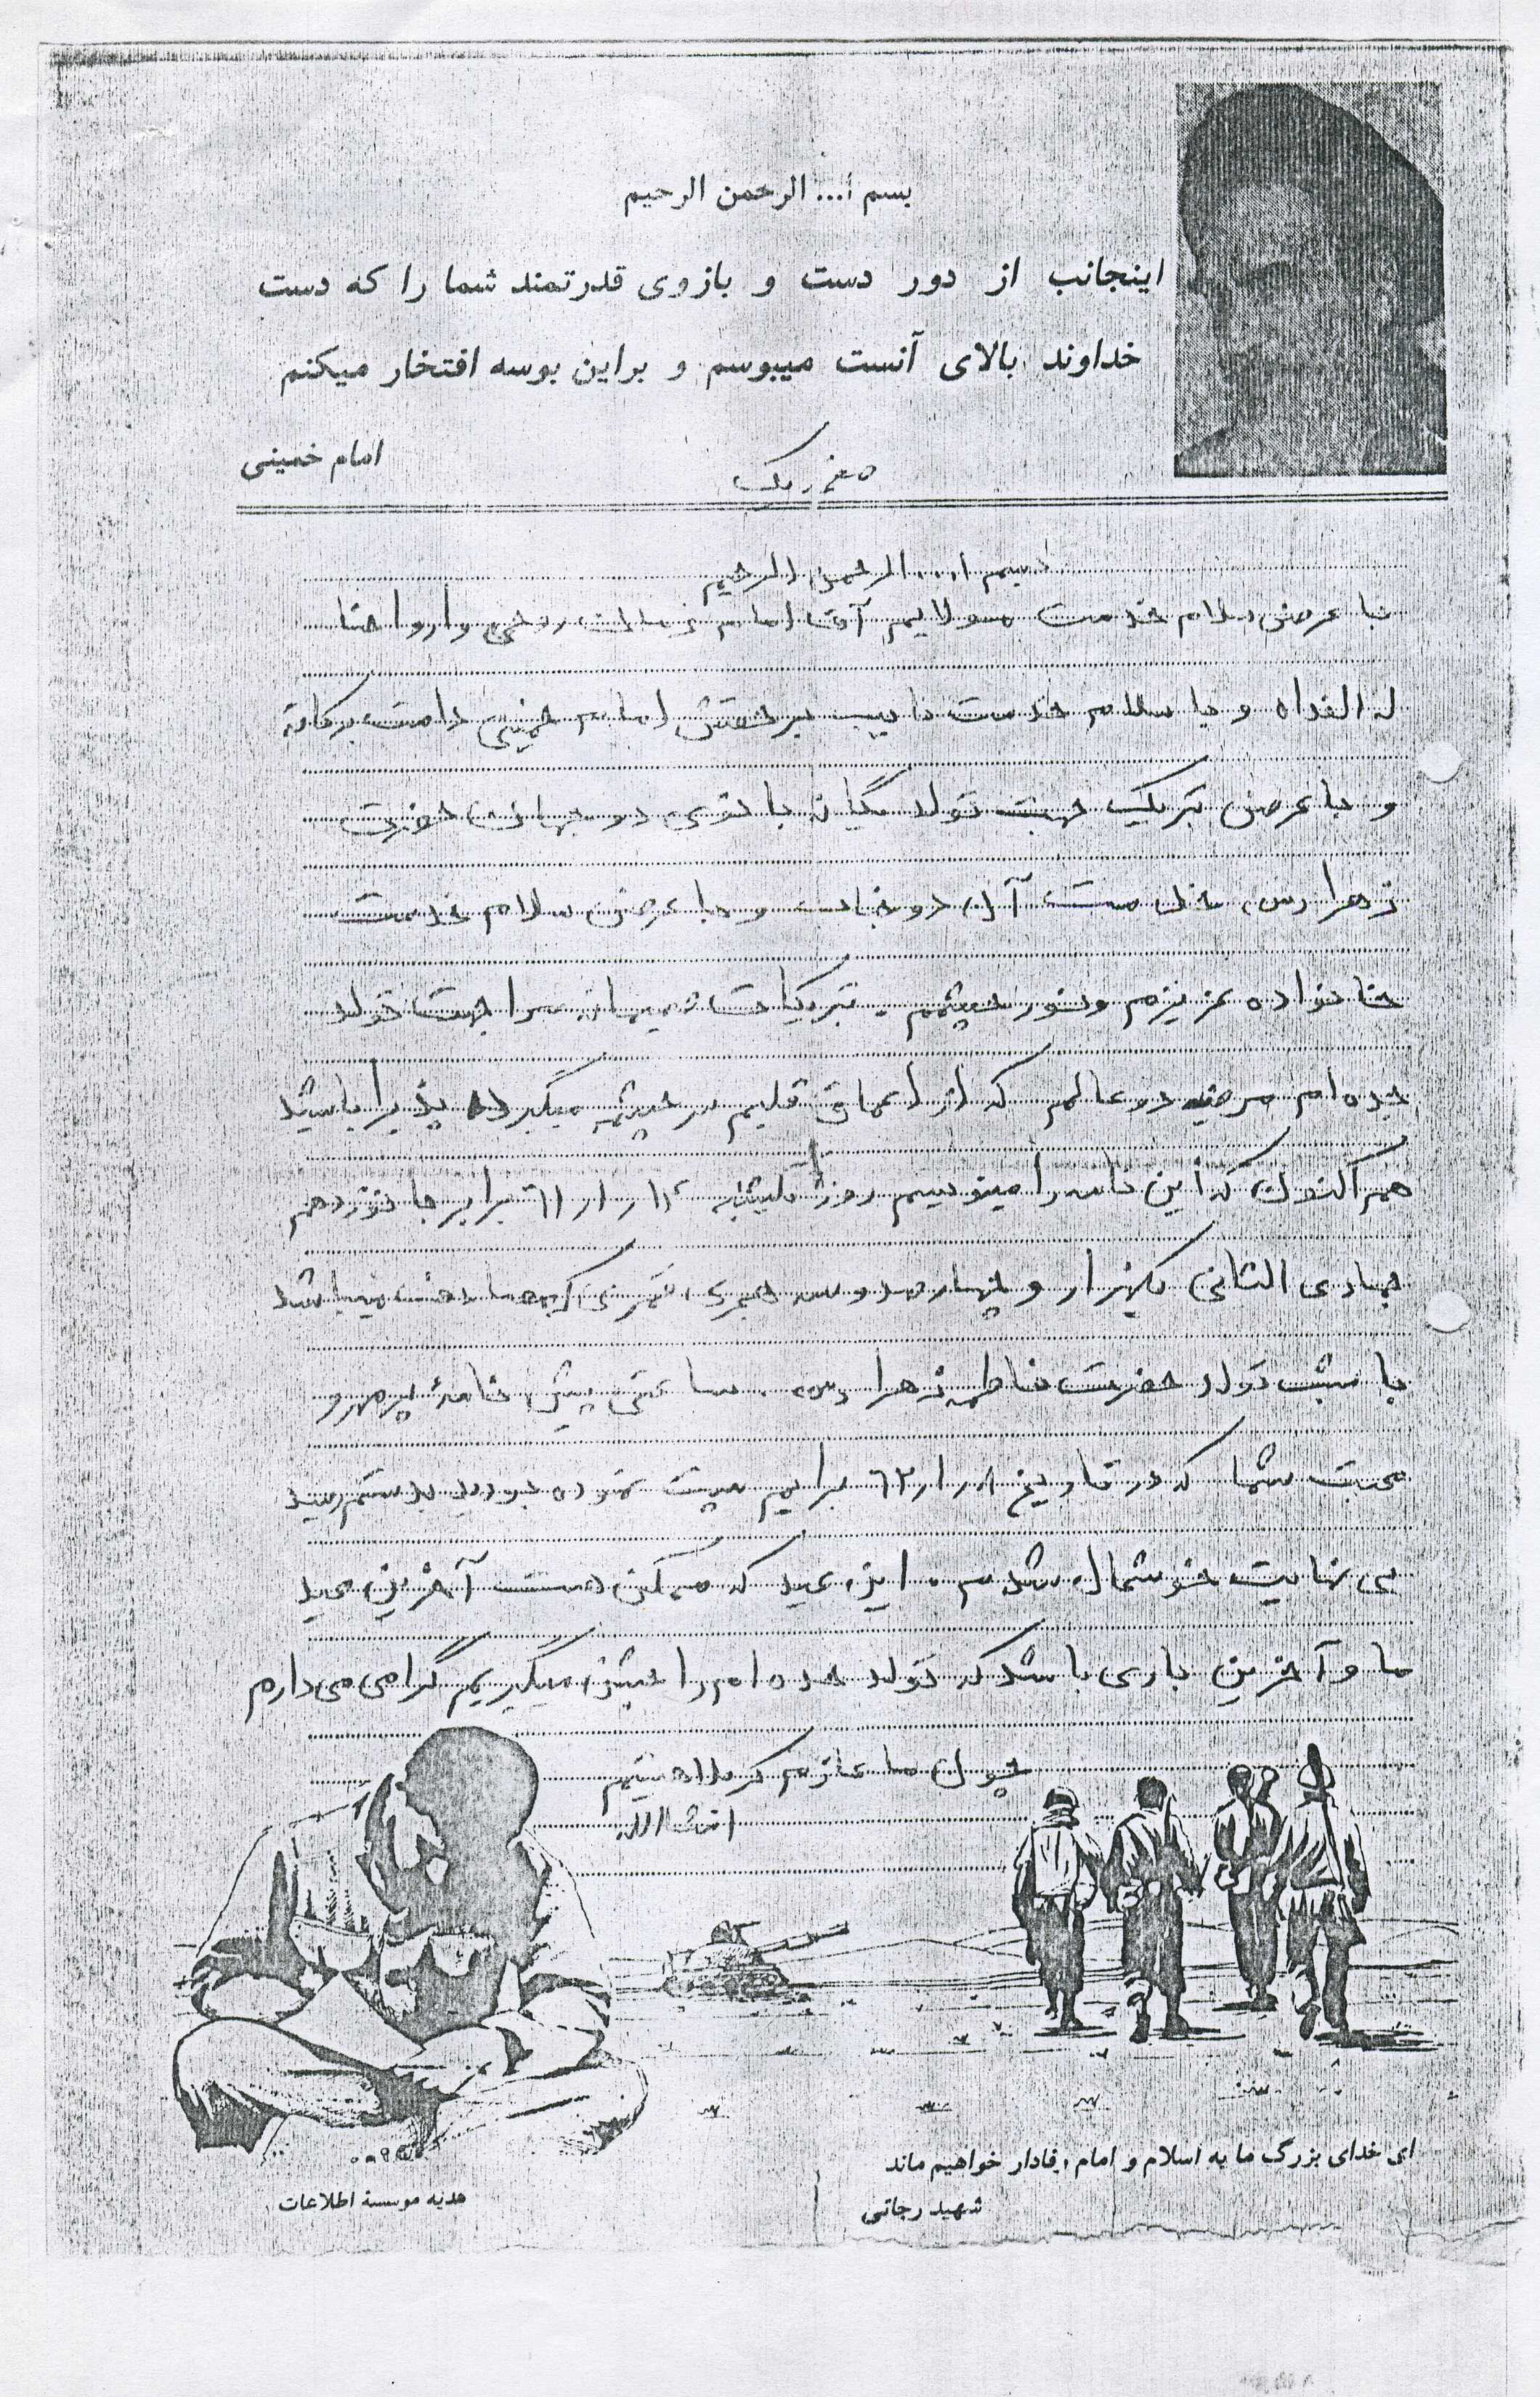 بسم ا... الرحمن الرحیم
اینجانب از دور دست و بازوی قدرتمند شما را که دست
خداوند بالای آنست میبوسم و براین بوسه افتخار میکنم
امام خمینی
صفحه یک
بسم ا... الرحمن الرحیم
با عرض سلام خدمت مولایم آقا امام زمان روحی وارواحنا
له الفداه و با سلام خدمت نایب برحقش امام خمینی دامت برکاته
و با عرض تبریک جهت تولد یگانه بانوی دو جهان حضرت
زهرا (س) خدمت آن دو جناب و با عرض سلام خدمت
خانواده عزیزم ونور چشمم. تبریکات صمیمانه مرا جهت تولد
جده ام مرضیه دو عالم که از اعماق قلبم سرچشمه میگیرد پذیرا باشید
هم اکنون که این نامه را مینویسم روز یکشنبه ۱۴ر۱ر۶۱ برابر با نوزدهم
جمادی الثانی یکهزار و چهارصد و سه هجری قمری که مصادف میباشد
با شب تولد حضرت فاطمه زهرا (س). ساعتی پیش نامهٔ پرمهر و
محبت شما که در تاریخ ۸ر۱ر۶۲ برایم پست نموده بودید بدستم رسید
بی نهایت خوشحال شدم. این عید که ممکن است آخرین عید
ما و آخرین باری باشد که تولد جده ام را جشن میگیریم گرامی می دارم
چون ما عازم کربلا هستیم
انشاالله
ای خدای بزرگ ما به اسلام و امام وفادار خواهیم ماند
شهید رجائی
هدیه موسسه اطلاعات